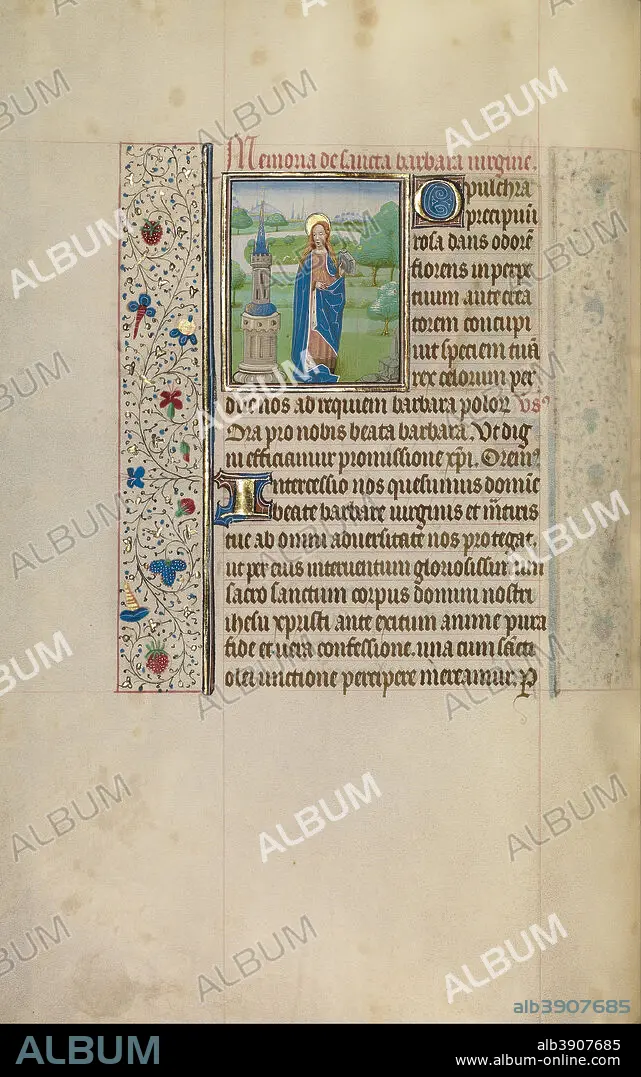 Memoria de sancta barbara virgine.
O pulchra
precipuu
rosa dans odore
florens in perpe
tuum ante crea
torem concupi
uit speciem tua
rex celorum per
duc nos ad requiem barbara polor vs
Ora pro nobis beata barbara. Vt dig
ni efficiamur promissione xpi. Orem
Intercessio nos quesumus domine
beate barbare uirginis et mrtiris
tue ab omni aduersitate nos protegat.
ut per eius interuentum gloriosissimum
sacro sanctum corpus domini nostri
ihesu xpristi ante exitum anime pura
fide et uera confessione. una cum sancti
olei unctione percipere mereamur. P
ALBUM
alb3907685
ALBUM
alb3907685
www.album-online.com